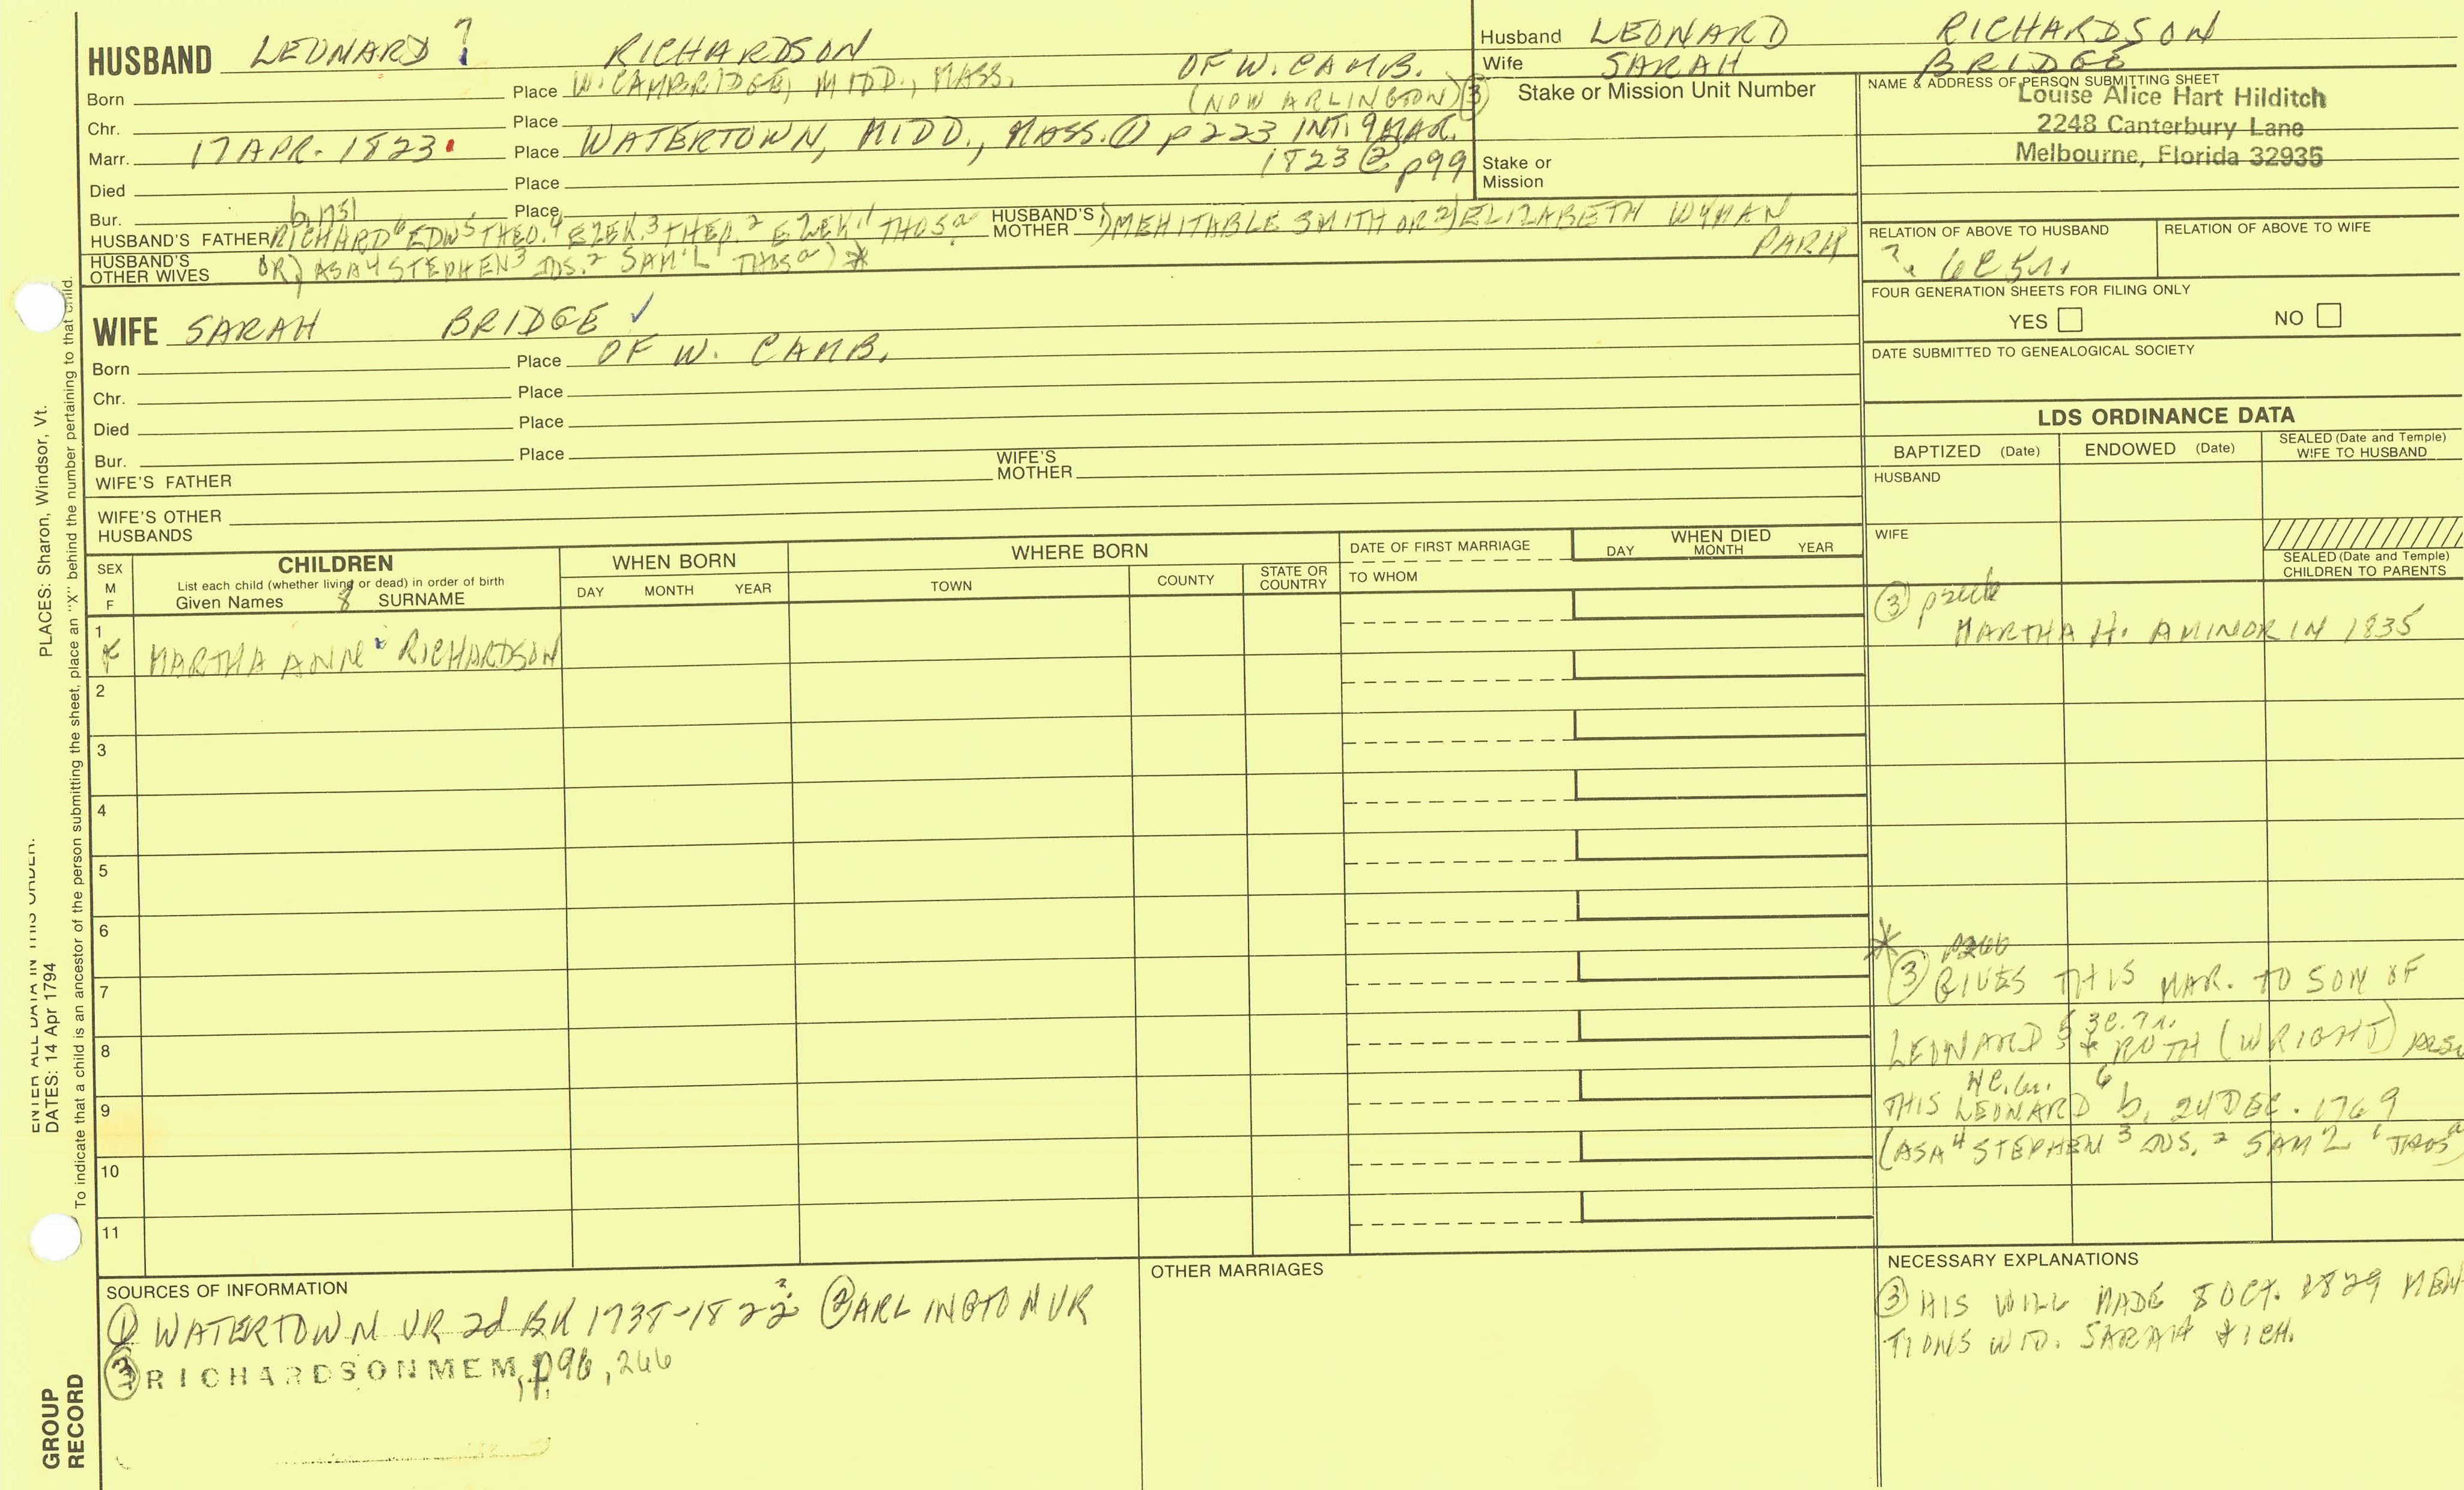 HUSBAND LEONARD 7 RICHARDSON OF W. CAMB.
Born Place W. CAMBRIDGE, MIDD., MASS. (NOW ARLINGTON) ③
Chr. Place
Marr. 17 APR. 1823 Place WATERTOWN, MIDD., MASS. ① p 223 INT. 9 MAR.
1823 ② p99
Died Place
Bur. Place
b. 1751
HUSBAND'S FATHER RICHARD 6 EDW 5 THEO. 4 EZEK. 3 THEO. 2 EZEK 1 THOS a HUSBAND'S MOTHER 1) MEHITABLE SMITH OR 2) ELIZABETH WYMAN
PARK
HUSBAND'S OTHER WIVES
OR) ASA 4 STEPHEN 3 JNS. 2 SAM'L 1 THOS a) *
Husband LEONARD RICHARDSON
Wife SARAH BRIDGE
Stake or Mission Unit Number
Stake or Mission
NAME & ADDRESS OF PERSON SUBMITTING SHEET
Louise Alice Hart Hilditch
2248 Canterbury Lane
Melbourne, Florida 32935
RELATION OF ABOVE TO HUSBAND RELATION OF ABOVE TO WIFE
? 6C 5r.
FOUR GENERATION SHEETS FOR FILING ONLY
YES NO
DATE SUBMITTED TO GENEALOGICAL SOCIETY
WIFE SARAH BRIDGE ✓
Born Place OF W. CAMB.
Chr. Place
Died Place
Bur. Place
WIFE'S FATHER WIFE'S MOTHER
WIFE'S OTHER HUSBANDS
LDS ORDINANCE DATA
BAPTIZED (Date) ENDOWED (Date) SEALED (Date and Temple) WIFE TO HUSBAND
HUSBAND
WIFE
SEALED (Date and Temple) CHILDREN TO PARENTS
SEX M F
CHILDREN
List each child (whether living or dead) in order of birth
Given Names 8 SURNAME
WHEN BORN
DAY MONTH YEAR
WHERE BORN
TOWN COUNTY STATE OR COUNTRY
DATE OF FIRST MARRIAGE
TO WHOM
WHEN DIED
DAY MONTH YEAR
1
F MARTHA ANN RICHARDSON
2
3
4
5
6
7
8
9
10
11
③
MARTHA H. A MINOR IN 1835
* p266
③ GIVES THIS MAR. TO SON OF
LEONARD 5 3C. 7r. + RUTH (WRIGHT)
THIS LEONARD 6 b. 24 DEC. 1769
(ASA 4 STEPHEN 3 JNS. 2 SAM'L 1 THOS a)
SOURCES OF INFORMATION
① WATERTOWN VR 2d BK 1738-1822 ? ② ARLINGTON VR
③ RICHARDSON MEM, p. 96, 266
OTHER MARRIAGES
NECESSARY EXPLANATIONS
③ HIS WILL MADE 8 OCT. 1829 MEN-
TIONS WID. SARAH + 1 CH.
PLACES: Sharon, Windsor, Vt.
ENTER ALL DATA IN THIS ORDER.
DATES: 14 Apr 1794
To indicate that a child is an ancestor of the person submitting the sheet, place an "X" behind the number pertaining to that child.
GROUP RECORD